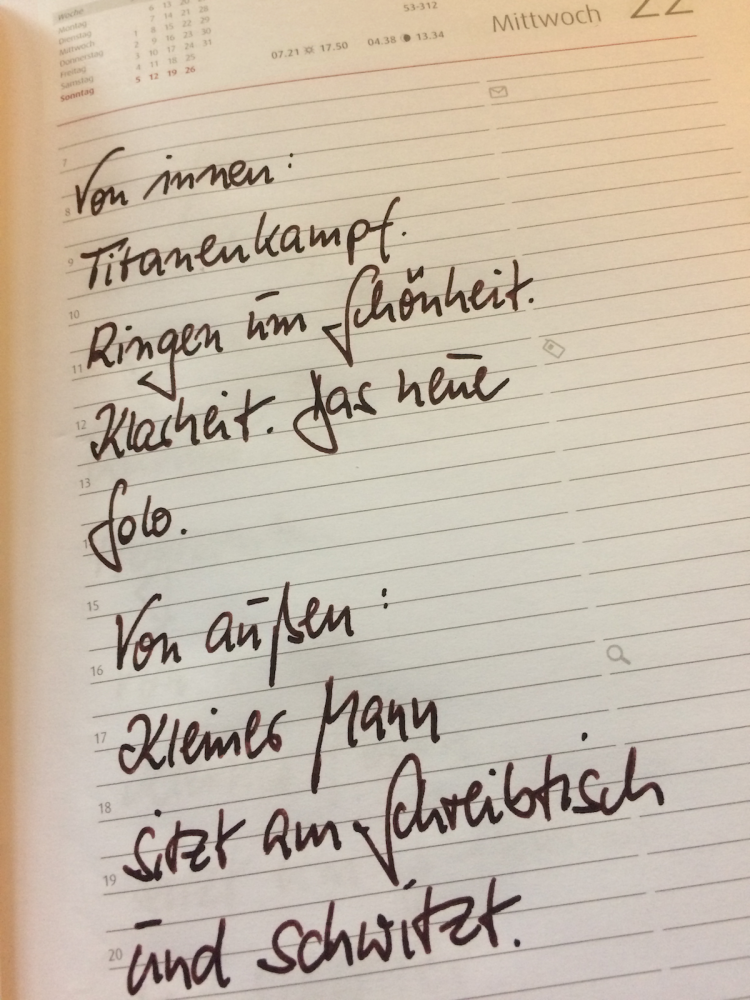 Woche
Montag
Dienstag
Mittwoch
Donnerstag
Freitag
Samstag
Sonntag
6 13 20
7 14 21 28
1 8 15 22 29
2 9 16 23 30
3 10 17 24 31
4 11 18 25
5 12 19 26
53-312
07.21 17.50 04.38 13.34
Mittwoch 22
7
8 Von innen:
9 Titanenkampf.
10
11 Ringen um Schönheit.
12 Klarheit. Das neue
13
Solo.
15
16 Von außen:
17 Kleiner Mann
18
19 sitzt am Schreibtisch
20 und schwitzt.